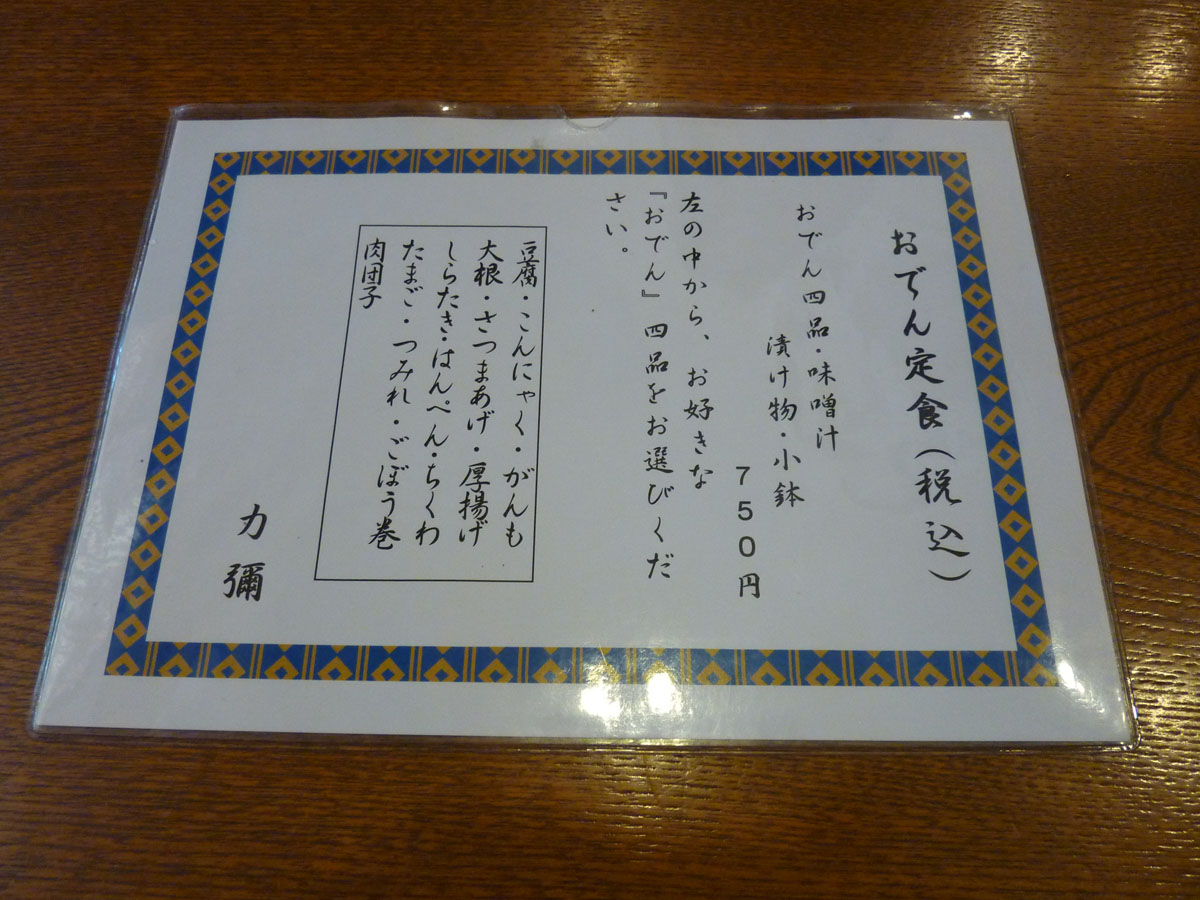 おでん定食(税込)
おでん四品・味噌汁
漬け物・小鉢
750円
左の中から、お好きな
『おでん』四品をお選びくだ
さい。
豆腐・こんにゃく・がんも
大根・さつまあげ・厚揚げ
しらたき・はんぺん・ちくわ
たまご・つみれ・ごぼう巻
肉団子
力彌